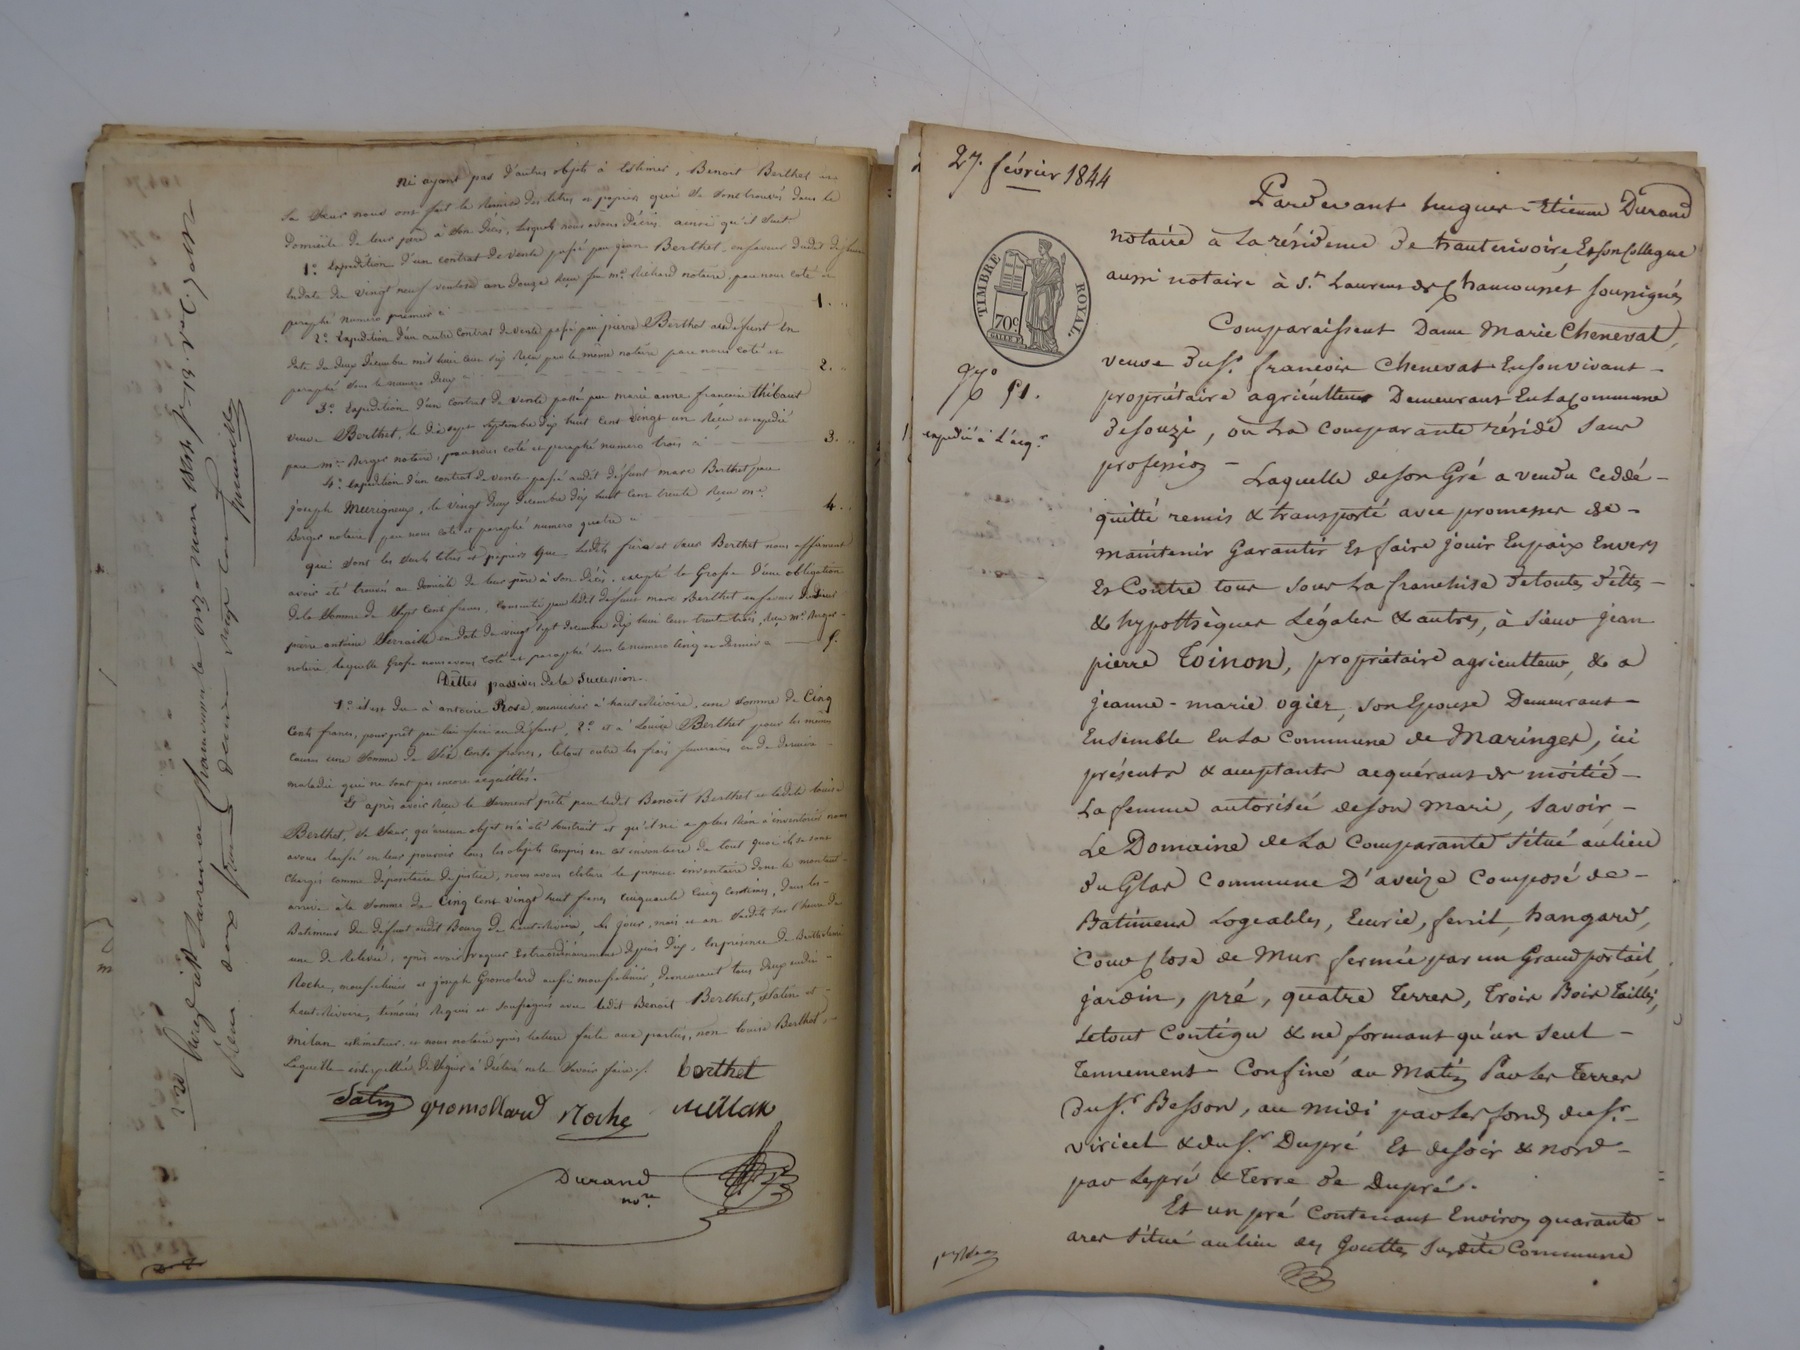 Ni ayant pas d'autres objets à Estimer, Benoit Berthet et
sa Sœur nous ont fait la Remise des titres et papiers qui se sont trouvés dans le
domicile de leur père à son décès, lesquels nous avons décris ainsi qu'il suit
1.° Expédition d'un contrat de vente passé par jean Berthet, en faveur dudit défunt
en date du vingt neuf ventose an douze Reçu par m.e Richard notaire, par nous coté et
paraphé numero premier ci 1.
2.° Expédition d'un autre contrat de vente passé par pierre Berthet audit défunt en
date du deux décembre mil huit cent six Reçu par le même notaire par nous coté et
paraphé sous le numero deux 2.
3.° Expédition d'un contrat de vente passé par marie anne françoise thibaut
veuve Berthet, le dix sept septembre dix huit cent vingt un Reçu et expédié
par m.e Berger notaire, par nous coté et paraphé numero trois ci 3.
4.° Expédition d'un contrat de vente passé audit défunt marc Berthet par
joseph Meurigneux, le vingt deux décembre dix huit cent trente Reçu m.e
Berger notaire, par nous coté et paraphé numero quatre ci 4.
qui sont les seuls titres et papiers que lesdits frère et sœur Berthet nous affirment
avoir été trouvés au domicile de leur père à son décès, excepté la Grosse d'une obligation
de la somme de Sept cent francs, consentie par ledit défunt marc Berthet en faveur de Sieur
pierre antoine Serraille en date du vingt sept décembre dix huit cent trente trois, Reçu m.e Berger
notaire, laquelle Grosse nous avons coté et paraphé sous le numero cinq et dernier ci 5.
Dettes passives de la Succession
1.° il est du à antoine Rose, menuisier à haute Rivoire, une somme de Cinq
Cents francs, pour prêt par lui fait au défunt, 2.° et à Louise Berthet pour les mêmes
causes une somme de Six Cents francs, le tout outre les frais funeraires et de derniere
maladie qui ne sont pas encore acquittés.
Et après avoir Reçu le Serment prêté par ledit Benoit Berthet et ladite Louise
Berthet, sa Sœur, qu'aucun objet n'a été soustrait et qu'il ni a plus Rien à inventorier nous
avons laissé en leur pouvoir tous les objets compris en cet inventaire de tout quoi ils se sont
chargés comme dépositaires de justice, nous avons cloturé le présent inventaire dont le montant
arrive à la somme de Cinq Cent vingt huit francs cinquante cinq centimes, dans les
Batimens du défunt audit Bourg de haute Rivoire, les jour, mois et an susdits sur l'heure de
une de Relevée, après avoir vaquer extraordinairement depuis dix, en présence de Barthelemi
Roche, mousselinier et joseph Gromolard aussi mousselinier, demeurant tous deux audit
haute Rivoire, témoins Requis et soussignés avec ledit Benoit Berthet, Salin et
Milan estimateur et nous notaire après lecture faite aux parties, non Louise Berthet,
Laquelle interpellée de signer à déclaré ne le savoir faire./.
berthet
Salin gromollard Roche Millan
Durand
no.re
27. février 1844
Pardevant hugues-Etienne Durand
notaire à la résidence de hauterivoire, Et son Collegue
aussi notaire à S.t Laurens de Chamousset soussignés
TIMBRE ROYAL.
70c
Comparaissent Dame Marie Chenevat,
veuve du S.r francois Chenevat En son vivant
N.° 51.
propriétaire agriculteur Demeurant En la Commune
expédié à l'acq.r
de souzi, où La Comparante réside Sans
profession - Laquelle de son Gré a vendu Ceddé
quitté remis & transporté avec promesses de
maintenir Garantir Et faire jouir En paix Envers
Et Contre tous sous La franchise de toutes dettes
& hypothèques Légales & autres, à sieur jean
pierre Toinon, propriétaire agriculteur, & a
jeanne-marie ogier, son Epouse Demeurant
Ensemble En la Commune de Maringes, ici
présents & acceptants acquérant de moitié
La femme autorisée de son mari, savoir
Le Domaine de La Comparante situé au lieu
du Glas Commune D'aveize Composé de
Batimens Logeables, Ecurie, fenil, hangard,
Cour Close de Mur fermée par un Grand portail,
jardin, pré, quatre Terres, trois Bois taillis,
Le tout Contigu & ne formant qu'un seul
Tennement - Confiné au Matin Par les Terres
du S.r Besson, au midi par les fonds du S.r
viricel & du S.r Dupré Et de soir & nord
par Le pré & terre de Dupré.
Et un pré Contenant Environ quarante
ares situé au lieu des Gouttes Susdite Commune